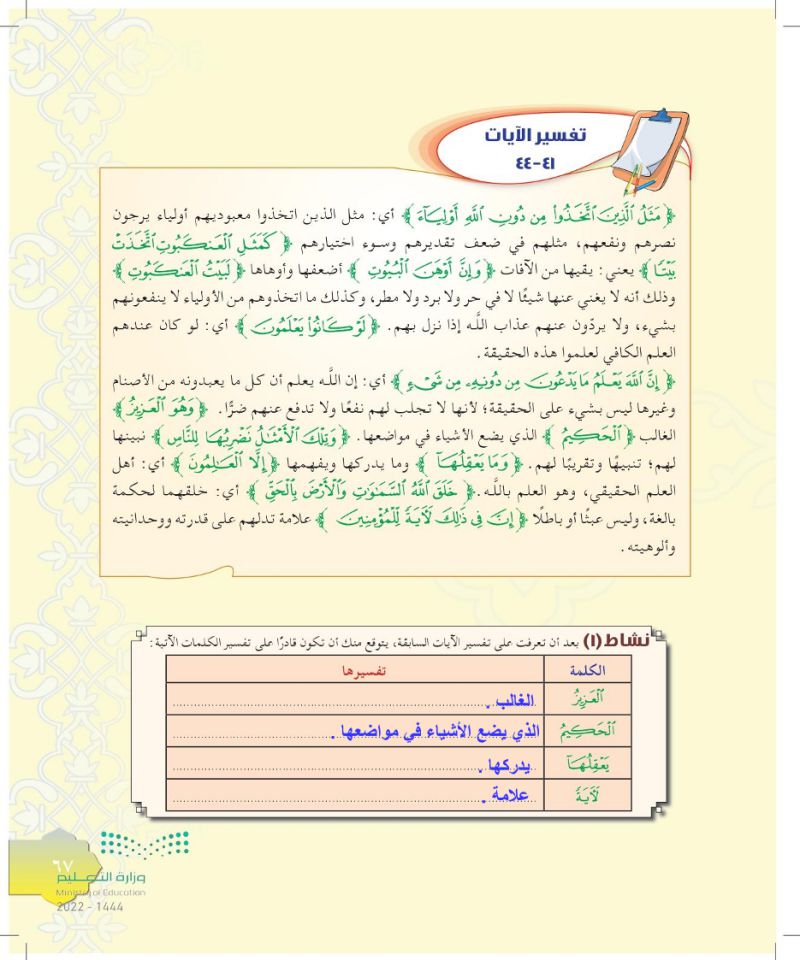 تفسير الآيات
٤١-٤٤
﴿ مَثَلُ ٱلَّذِينَ ٱتَّخَذُوا۟ مِن دُونِ ٱللَّهِ أَوْلِيَآءَ ﴾ أي: مثل الذين اتخذوا معبوديهم أولياء يرجون
نصرهم ونفعهم، مثلهم في ضعف تقديرهم وسوء اختيارهم ﴿ كَمَثَلِ ٱلْعَنكَبُوتِ ٱتَّخَذَتْ
بَيْتًا ﴾ يعني: يقيها من الآفات ﴿ وَإِنَّ أَوْهَنَ ٱلْبُيُوتِ ﴾ أضعفها وأوهاها ﴿ لَبَيْتُ ٱلْعَنكَبُوتِ ﴾
وذلك أنه لا يغني عنها شيئًا لا في حر ولا برد ولا مطر، وكذلك ما اتخذوهم من الأولياء لا ينفعونهم
بشيء، ولا يردّون عنهم عذاب اللَّه إذا نزل بهم. ﴿ لَوْ كَانُوا۟ يَعْلَمُونَ ﴾ أي: لو كان عندهم
العلم الكافي لعلموا هذه الحقيقة.
﴿ إِنَّ ٱللَّهَ يَعْلَمُ مَا يَدْعُونَ مِن دُونِهِۦ مِن شَىْءٍ ﴾ أي: إن اللَّه يعلم أن كل ما يعبدونه من الأصنام
وغيرها ليس بشيء على الحقيقة؛ لأنها لا تجلب لهم نفعًا ولا تدفع عنهم ضرًّا. ﴿ وَهُوَ ٱلْعَزِيزُ ﴾
الغالب ﴿ ٱلْحَكِيمُ ﴾ الذي يضع الأشياء في مواضعها. ﴿ وَتِلْكَ ٱلْأَمْثَٰلُ نَضْرِبُهَا لِلنَّاسِ ﴾ نبينها
لهم؛ تنبيهًا وتقريبًا لهم. ﴿ وَمَا يَعْقِلُهَآ ﴾ وما يدركها ويفهمها ﴿ إِلَّا ٱلْعَٰلِمُونَ ﴾ أي: أهل
العلم الحقيقي، وهو العلم باللَّه. ﴿ خَلَقَ ٱللَّهُ ٱلسَّمَٰوَٰتِ وَٱلْأَرْضَ بِٱلْحَقِّ ﴾ أي: خلقهما لحكمة
بالغة، وليس عبثًا أو باطلًا ﴿ إِنَّ فِى ذَٰلِكَ لَآيَةً لِّلْمُؤْمِنِينَ ﴾ علامة تدلهم على قدرته ووحدانيته
وألوهيته.
نشاط (١) بعد أن تعرفت على تفسير الآيات السابقة، يتوقع منك أن تكون قادرًا على تفسير الكلمات الآتية:
الكلمة تفسيرها
ٱلْعَزِيزُ الغالب .
ٱلْحَكِيمُ الذي يضع الأشياء في مواضعها .
يَعْقِلُهَآ يدركها .
لَآيَةً علامة .
٦٧
وزارة التعليم
Ministry of Education
2022 - 1444